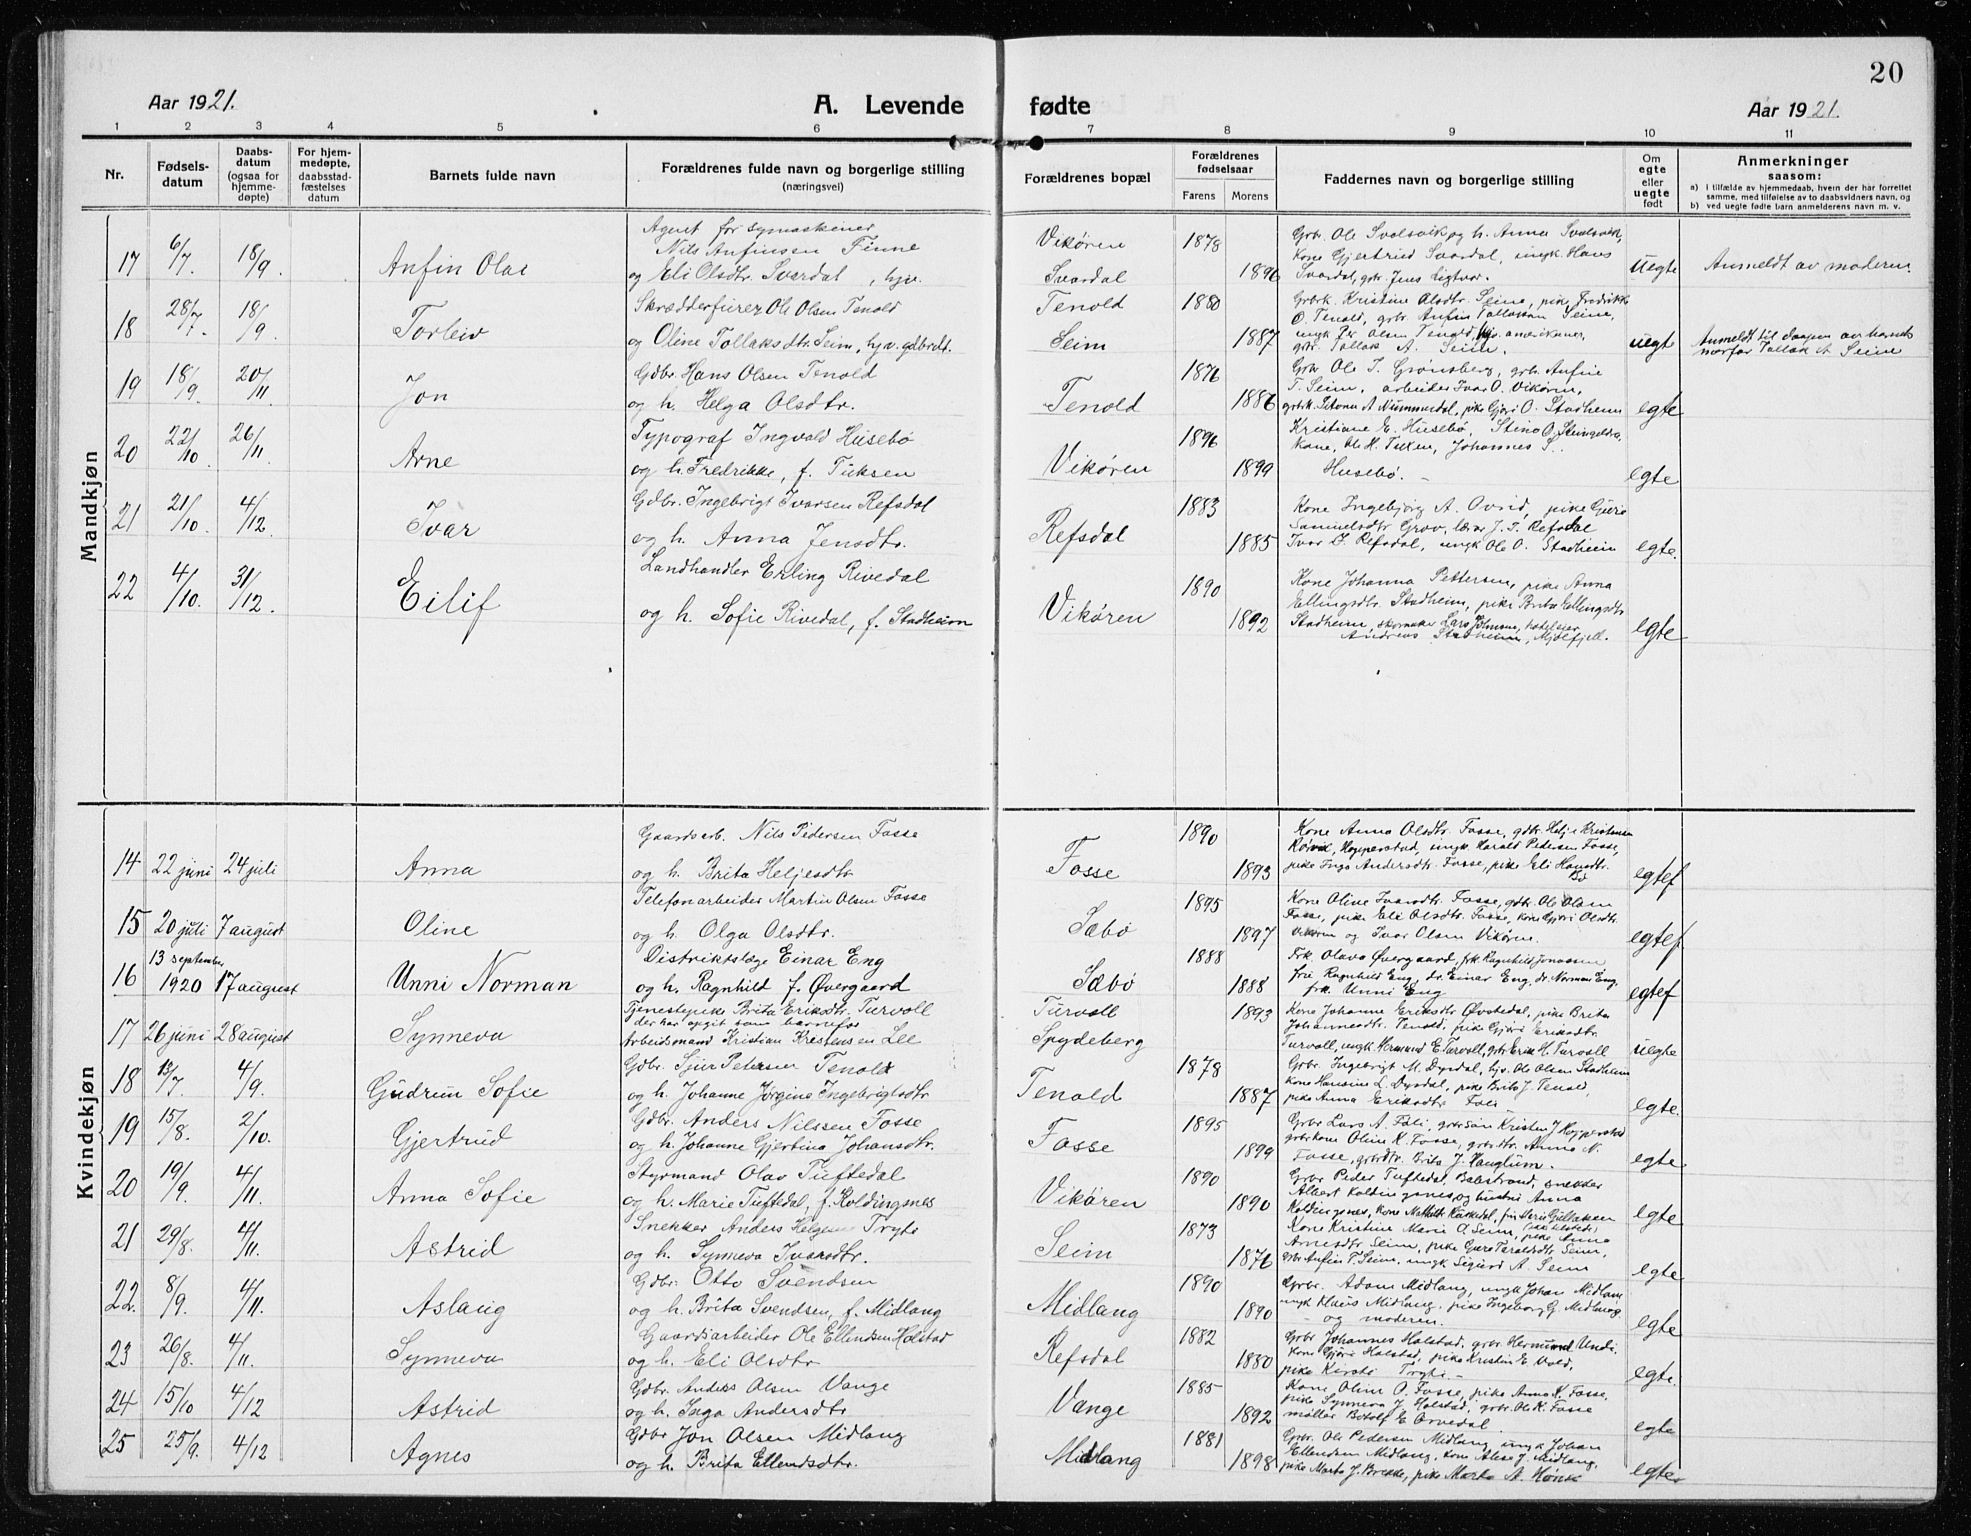 20
Aar 1921.
A. Levende
fødte
Aar 1921.
1 2 3 4 5 6 7 8 9 10 11
Nr.
Fødsels-
datum
Daabs-
datum
(ogsaa for
hjemme-
døpte)
For hjem-
medøpte,
daabsstad-
fæstelses
datum
Barnets fulde navn
Forældrenes fulde navn og borgerlige stilling
(næringsvei)
Forældrenes bopæl
Forældrenes
fødselsaar
Farens Morens
Faddernes navn og borgerlige stilling
Om
egte
eller
uegte
født
Anmerkninger
saasom:
a) i tilfælde av hjemmedaab, hvem der har forrettet
samme, med tilføielse av to daabsvidners navn, og
b) ved uegte fødte barn anmelderens navn m. v.
Mandkjøn
17 6/7. 18/9. Anfin Olai
Agent for symaskiner
Nils Anfinssen Finne
og Eli Olsdtr. Svardal, hjv.
Vikøren 1878
Svardal 1896
Grbr. Ole Svolsvik og h. Anna Svolsvik,
Kone Gjertrud Svardal, ungk. Hans
Svardal, gbr. Jens Ligtvor.
uegte Anmeldt av moderen.
18 28/7. 18/9. Torleiv
Skrædderfurer Ole Olsen Tenold
og Oline Tollaksdtr. Seim, hjv. gdbrdt.
Tenold 1880
Seim 1887
Grbrk. Kristine Olsdtr. Seim, pike Fredrikk
O. Tenold, grbr. Anfin Tollakssøn Seim,
ungk Per Olsen Tenold, hjv. amerikaner,
gbr. Tollak A. Seim.
uegt Anmeldt til daapen av barnets
morfar Tollak A Seim
19 18/9. 20/11 Jon
Gdbr. Hans Olsen Tenold
og h. Helga Olsdtr.
Tenold 1876 1886
Grbr Ole I. Grønsberg, grbr. Anfin
T. Seim, arbeider Ivar O. Vikøren,
grbrk. A Nummedal, pike Gjøri O. Stadheim
egte
20 22/10. 26/11. Arne
Typograf Ingvald Husebø
og h. Fredrikke, f. Tuksen
Vikøren 1896 1899
Kristiane E. Husebø, Stina O.
Kone, Ole M. Tuxen, Johannes S..
Husebø.
egte
21 21/10. 4/12. Ivar
Gdbr. Ingebrigt Ivarsen Refsdal
og h. Anna Jensdtr.
Refsdal 1883 1885
Kone Ingebjørg A. Ovrid, pike Guro
Samuelsdtr Grov, lærer J. I. Refsdal
Ivar I. Refsdal, ungk Ole O. Stadheim
egte.
22 4/10. 31/12. Eilif
Landhandler Erling Rivedal
og h. Sofie Rivedal, f. Stadheim
Vikøren 1890 1892
Kone Johanna Pettersen, pike Anna
Ellingsdtr. Stadheim, pike Brita Ellingsdtr
Stadheim, skomaker Lars Johnsen, hoteleier
Andreas Stadheim, Mjølfjell.
egte
Kvindekjøn
14 22 juni 24 juli Anna
Gaardsarb. Nils Pedersen Fosse
og h. Brita Heljesdtr
Fosse 1890 1893
Kone Anna Olsdtr. Fosse, gdbr. Helje Kristensen
Hopperstad, ungk Harald Pedersen Fosse,
pike Inga Andersdtr. Fosse, pike Eli Hansdtr.
Bø
egtef
15 20 juli 7 august Oline
Telefonarbeider Martin Olsen Fosse
og h. Olga Olsdtr.
Sæbø 1895 1897
Kone Oline Ivarsdtr. Fosse, gdbr. Ole Olsen
Fosse, pike Eli Olsdtr. Fosse, kone Gjøri Olsdtr.
Vikøren og Ivar Olsen Vikøren.
egtef
16 13 september 1920 17 august Unni Norman
Distriktslæge Einar Eng
og h. Ragnhild f. Øvergaard
Sæbø 1888 1888
Frk. Olava Øvergaard, frk Ragnhild Jonassen
frue Ragnhild Eng, dr. Einar Eng, dr. Norman Eng,
frk. Unni Eng
egtef
17 26 juni 28 august Synneva
Tjenestepike Brita Eriksdtr. Turvoll
der har opgit som barnefar
Arbeidsmand Kristian Kristensen Lee
Turvoll 1893
Spydeberg
Kone Johanne Eriksdtr Øvstedal, pike Brita
Johannesdtr. Tenold, pike Gjøri Eriksdtr.
Turvoll, ungk. Hermund E. Turvoll, gbr. Erik H. Turvoll
uegte
18 13/7 4/9. Gudrun Sofie
Gdbr. Sjur Petersen Tenold
og h. Johanne Jørgine Ingebrigtsdtr
Tenold 1878 1887
Grbr. Ingebrigt M. Dysdal, hjv. Ole Olsen Stadheim
kone Hansine L. Dysdal, pike Brita J. Tenold,
pike Anna Eriksdtr Føli
egte.
19 15/8. 2/10. Gjertrud
Gdbr. Anders Nilssen Fosse
og h. Johanne Gjertina Johansdtr.
Fosse 1895 1899
Grbr Lars A. Føli, grbr.søn Kristen J Hopperstad
grbrkone Oline K. Fosse, grbrdtr. Anna N.
Fosse, grbrdtr. Brita J. Hauglum.
egte
20 19/9. 4/11. Anna Sofie
Styrmand Olav Tuftedal
og h. Marie Tuftedal, f. Koldingsnes
Vikøren 1890 1890
Grbr Peder Tuftedal, Balestrand, snekker
Albert Koldingsnes og hustru Anna
Koldingsnes, kone Mathilde
egte
21 29/8. 4/11. Astrid
Snekker Anders Helgesen Trygte
og h. Synneva Ivarsdtr.
Seim 1873 1876
Kone Kristine Marie O. Seim, pike Anna
Arnesdtr Seim, pike Guro Taraldsdtr Seim,
gbr Anfin T. Seim, ungk Sigurd A. Seim
egte
22. 8/9. 4/11. Aslaug
Gdbr. Otto Svendsen
og h. Brita Svendsen, f. Midlang
Midlang 1890 1890
Grbr. Adam Midlang, ungk Johan Midlang
ungk Klaus Midlang, pike Ingeborg G. Midlang
- og moderen.
egte
23 26/8. 4/11. Synneva
Gaardsarbeider Ole Ellendsen Holstad
og h. Eli Olsdtr
Refsdal 1882 1880
Grbr Johannes Holstad, grbr. Hermund Undi.
Kone Gjøri Holstad, pike Kristin E. Vold,
pike Kirsti Trygte -
egte.
24 15/10 4/12 Astrid
Gdbr. Anders Olsen Vange
og h. Inga Andersdtr
Vange 1885 1892
Kone Oline O. Fosse, pike Anna K. Fosse,
pike Synneva J Holstad, grbr. Ole K. Fosse
møller Botolf E Orvedal.
egte
25 25/9. 4/12 Agnes
Gdbr Jon Olsen Midlang
og h. Brita Ellendsdtr.
Midlang 1881 1898
Grbr. Ole Pedersen Midlang, ungk Johan
Ellendsen Midlang, kone Alise J. Midlang,
pike Marta J. Brekke, pike Marta A. Hønsi
egte